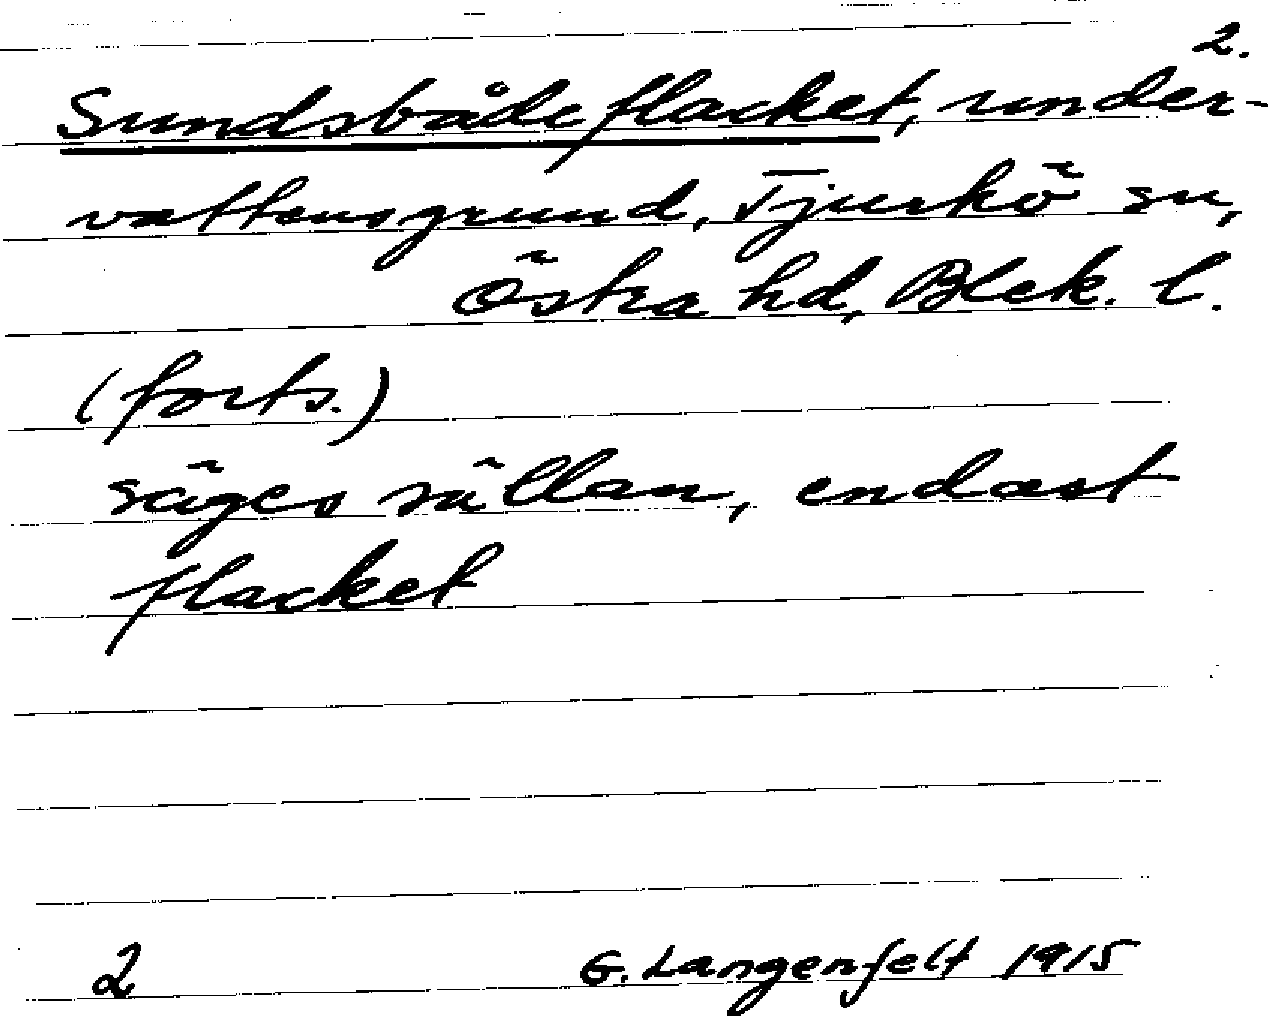 2.
Sundsbådeflacket, under-
vattensgrund, Tjurkö sn,
Östra hd, Blek. l.
(forts.)
säges sällan, endast
flacket
2 G. Langenfelt 1915